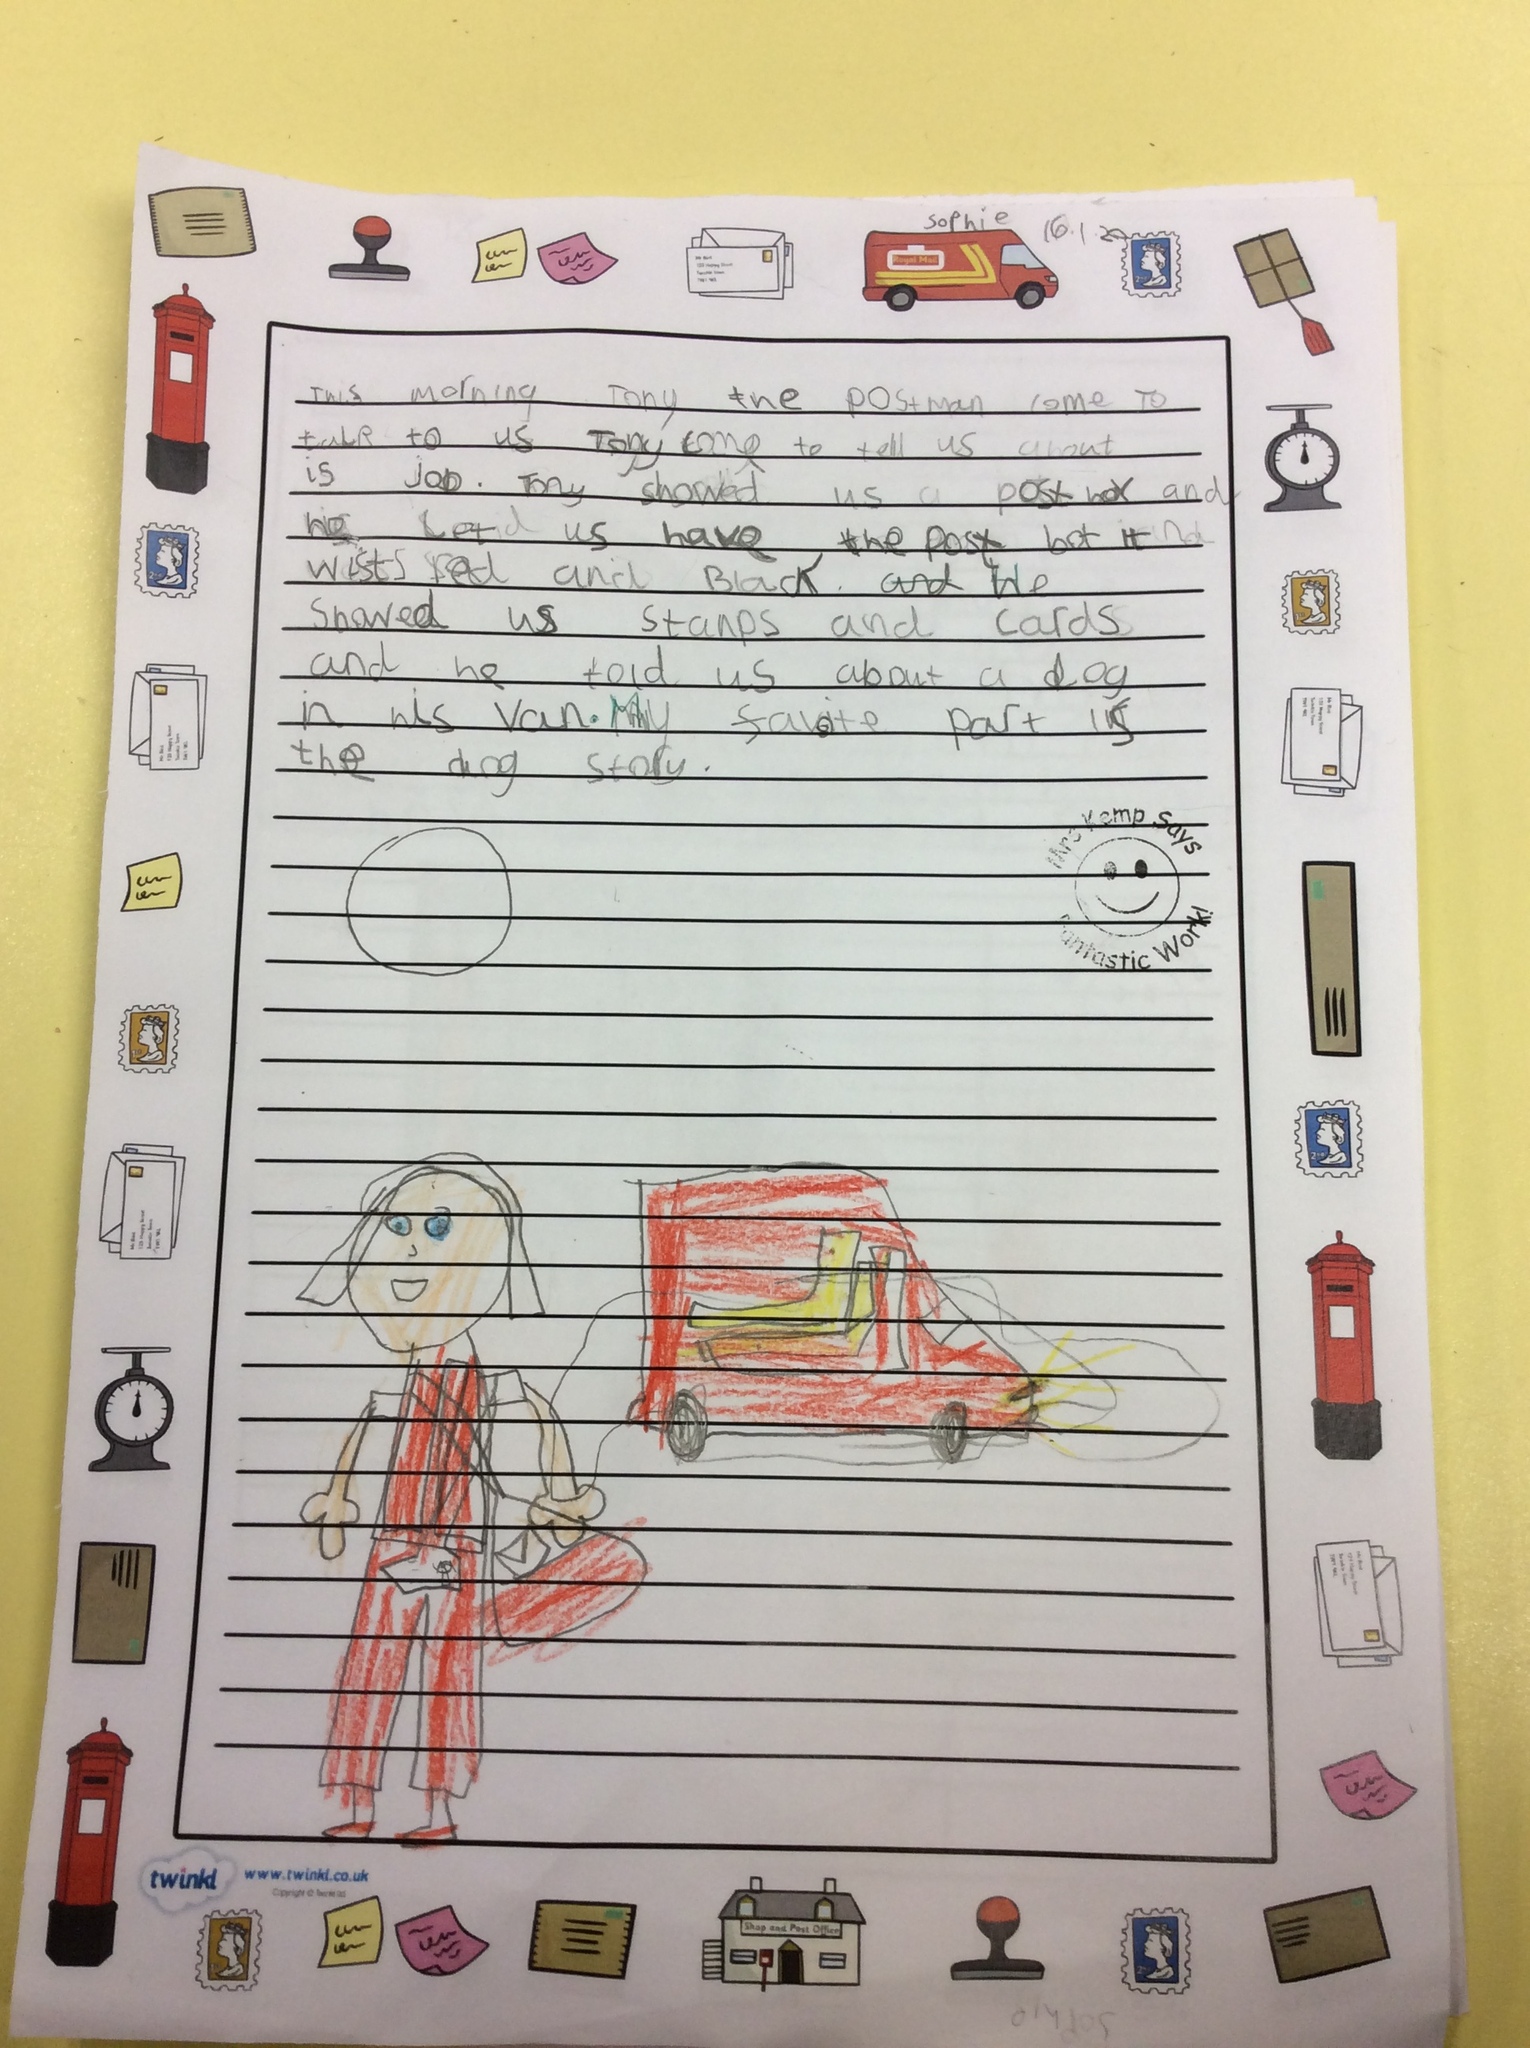 sophie 16.1.20
Royal Mail
This morning Tony the postman come to
talk to us Tony come to tell us about
is job. Tony showed us a post box and
he let us have the post bot it
wists red and Black. and He
Showed us stanps and cards
and he told us about a dog
in his van. My favoite part is
the dog story.
Mrs Kemp Says
Fantastic Work!
twinkl www.twinkl.co.uk
Copyright © Twinkl Ltd
Shop and Post Office
Sophie